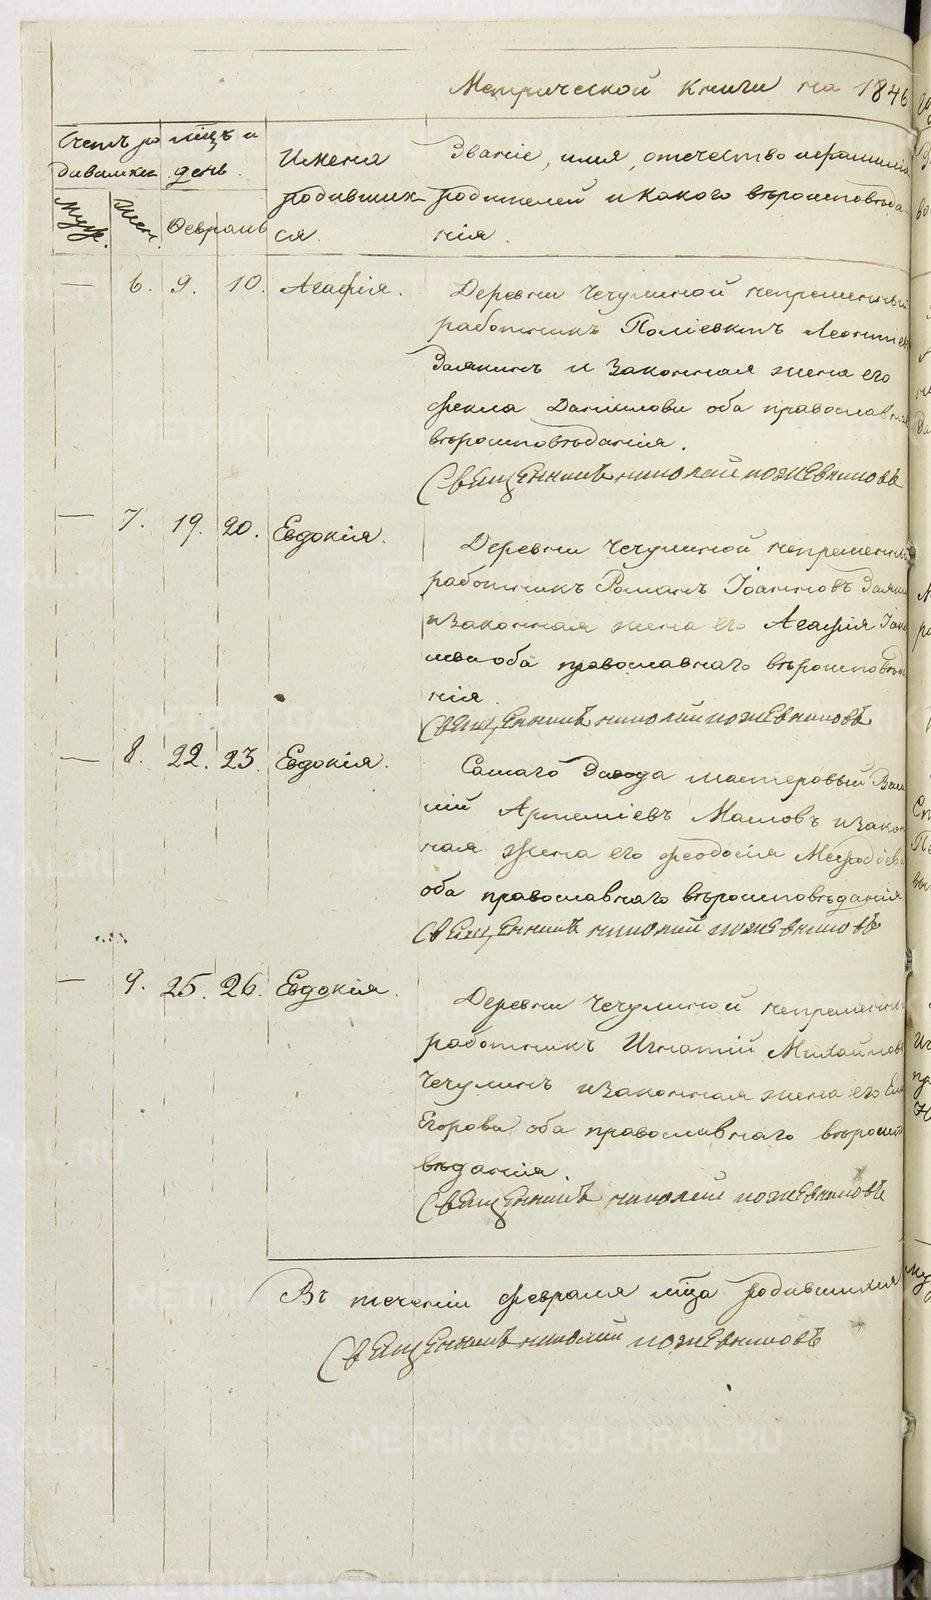 Метрической книги на 1846
Счетъ ро мѣсцъ и
дившихся день
Муж. Жен. Февраль
Имена
родивших-
ся.
Званіе, имя, отечество и фамилія
родителей и какого вѣроисповѣда-
нія.
— 6. 9. 10. Агафія.
Деревни Чечулиной непременный
работникъ Поліевктъ Леонтіев
Заякинъ и законная жена его
Фекла Данилова оба православнаго
вѣроисповѣданія.
Священникъ Николай Пожевниковъ
— 7. 19. 20. Евдокія.
Деревни Чечулиной непременный
работникъ Романъ Іоанновъ Заяки
и законная жена его Агафія
оба православнаго вѣроисповѣда
нія.
Священникъ Николай Пожевниковъ
— 8. 22. 23. Евдокія.
Самаго Завода мастеровый Васи
лій Артеміевъ Масловъ и закон
ная жена его Феодосія Мефодіева
оба православнаго вѣроисповѣданія
Священникъ Николай Пожевниковъ
— 9. 25. 26. Евдокія.
Деревни Чечулиной непременный
работникъ Игнатій Михайловъ
Чечулинъ и законная жена его
Егорова оба православнаго вѣроиспо
вѣданія.
Священникъ Николай Пожевниковъ
Въ теченіи февраля мѣсца родившихся
Священникъ Николай Пожевниковъ
METRIKI.GASO-URAL.RU